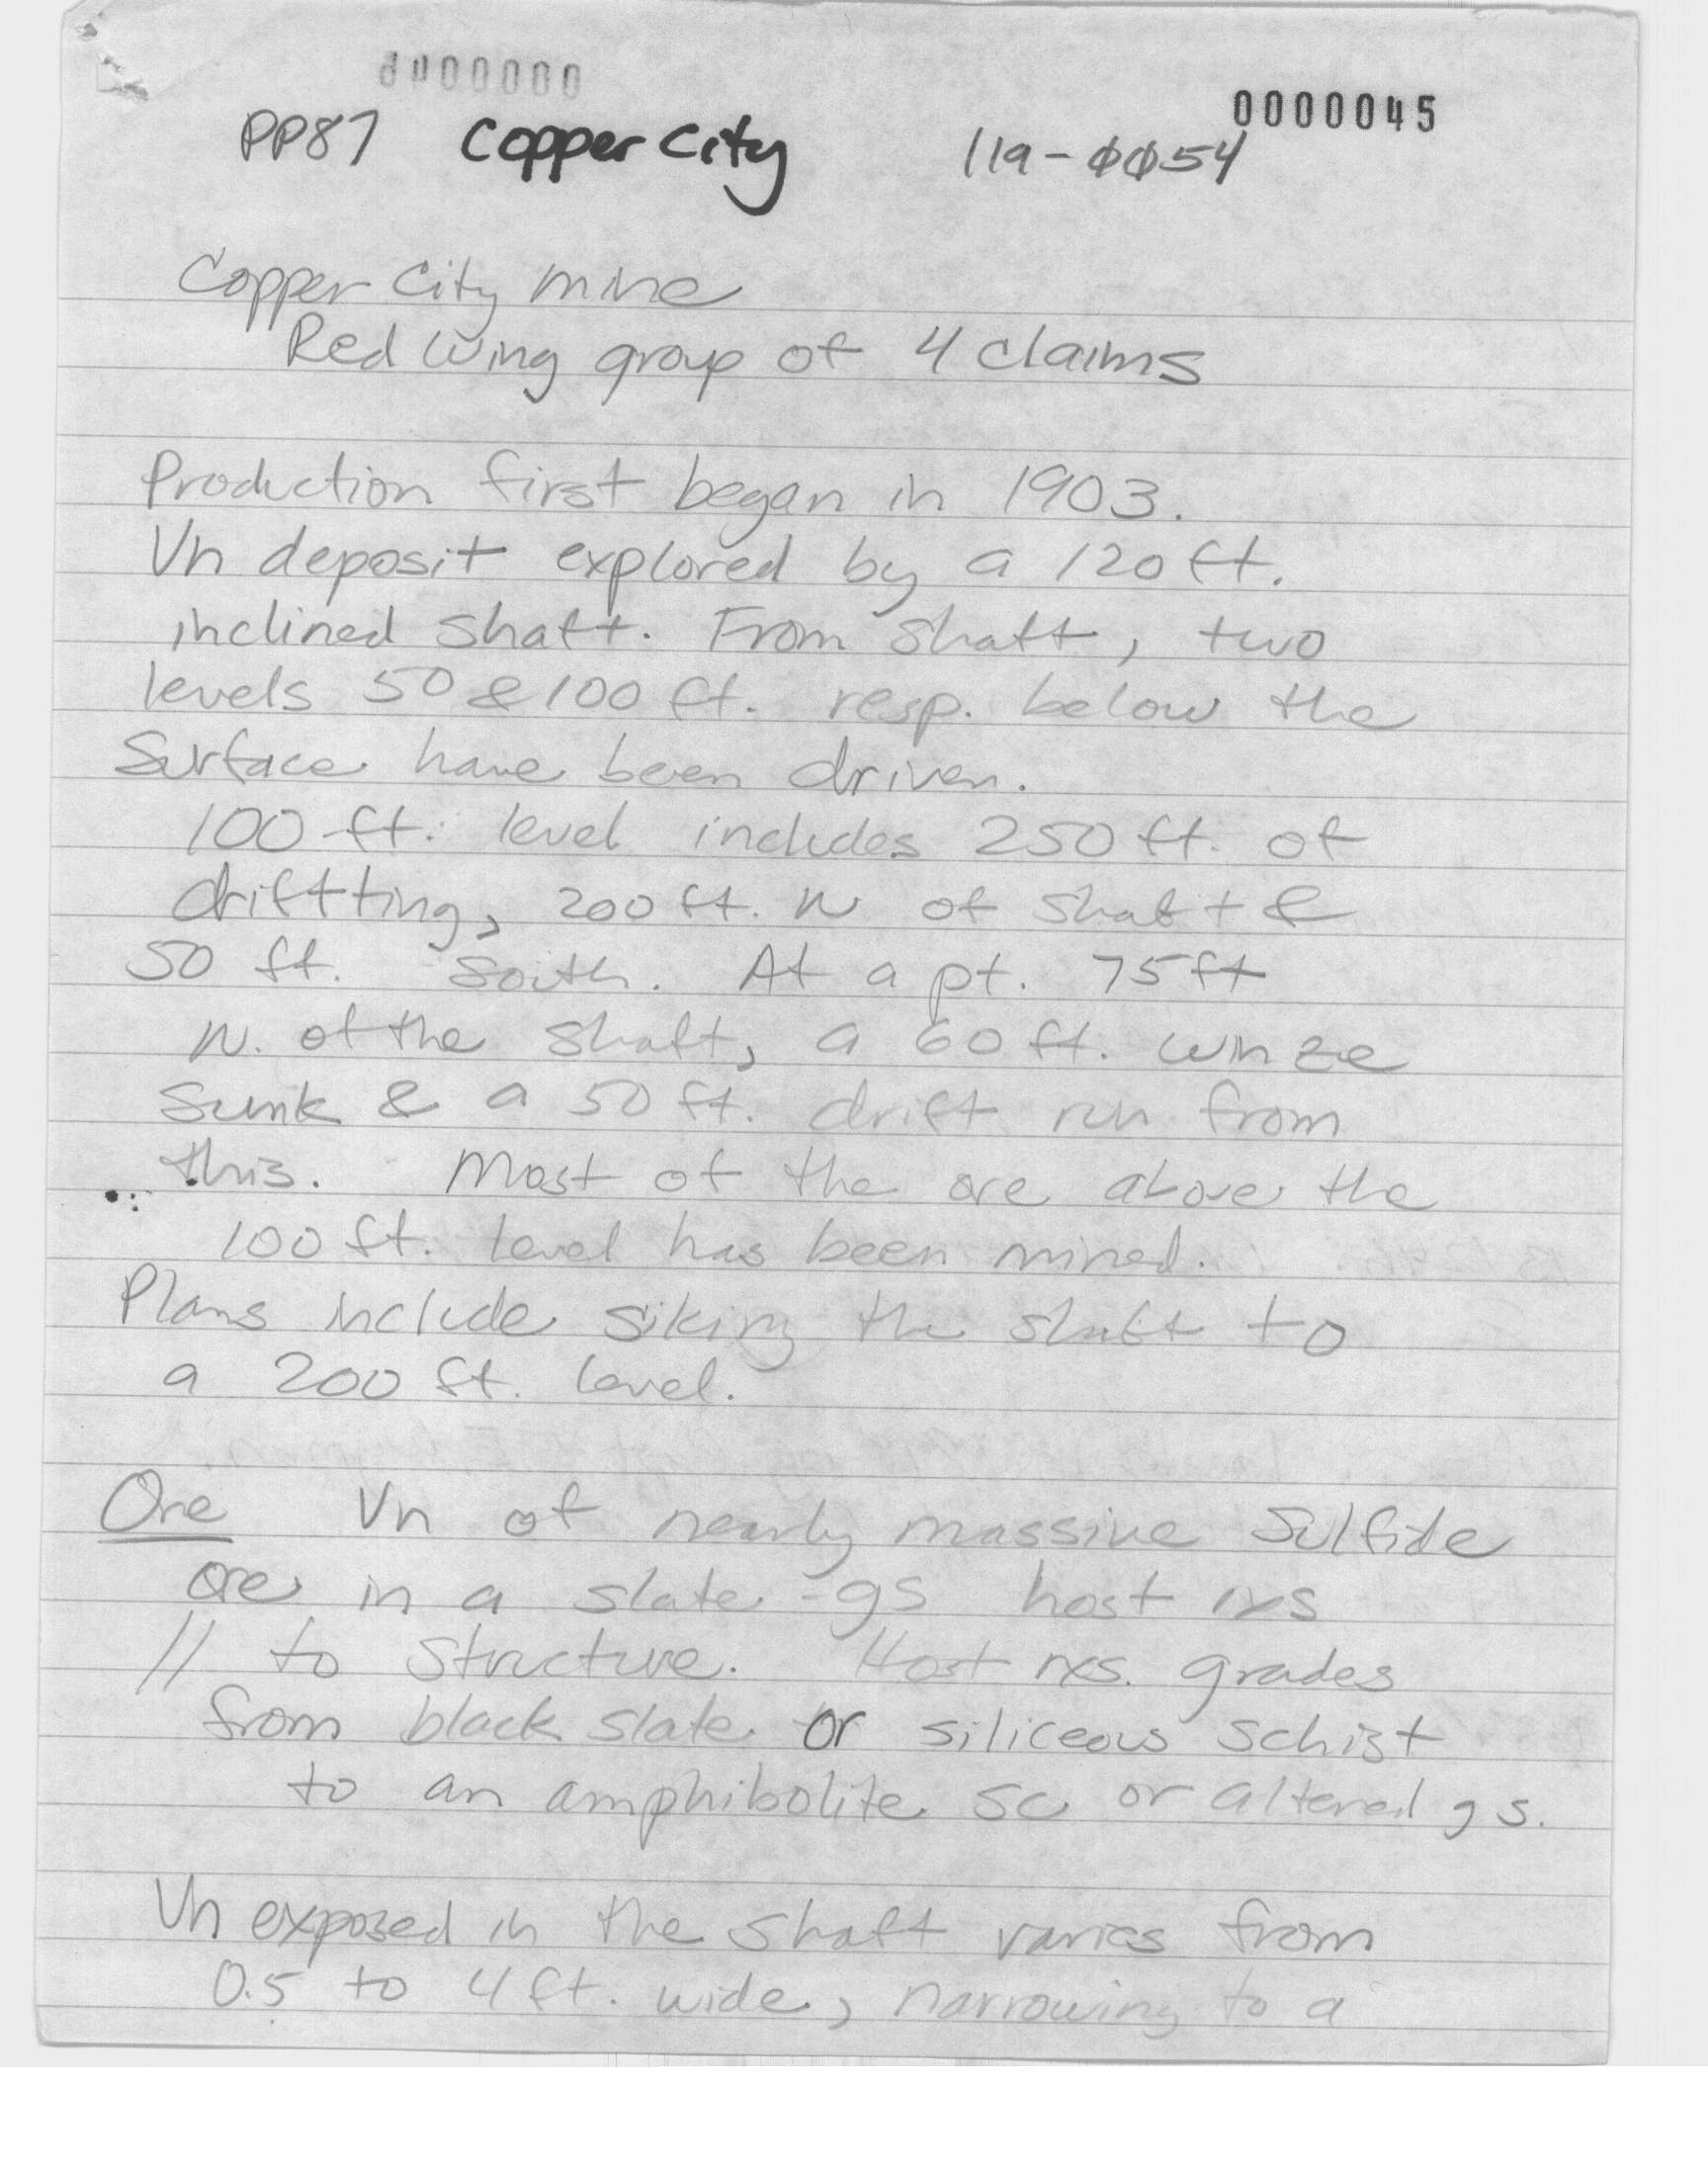 0000045
PP87 Copper City 119-0054
Copper City mine
Red Wing group of 4 claims
Production first began in 1903.
Vn deposit explored by a 120 ft.
inclined shaft. From shaft, two
levels 50 & 100 ft. resp. below the
Surface have been driven.
100 ft. level includes 250 ft. of
driftting, 200 ft. N of shaft &
50 ft. South. At a pt. 75 ft
N. of the shaft, a 60 ft. winze
Sunk & a 50 ft. drift run from
this. Most of the ore above the
100 ft. level has been mined.
Plans include siking the shaft to
a 200 ft. level.
Ore Vn of nearly massive Sulfide
ore in a slate - gs host rxs
// to structure. Host rxs. grades
from black slate or siliceous schist
to an amphibolite sc or altered gs.
Vn exposed in the shaft varies from
0.5 to 4 ft. wide, narrowing to a